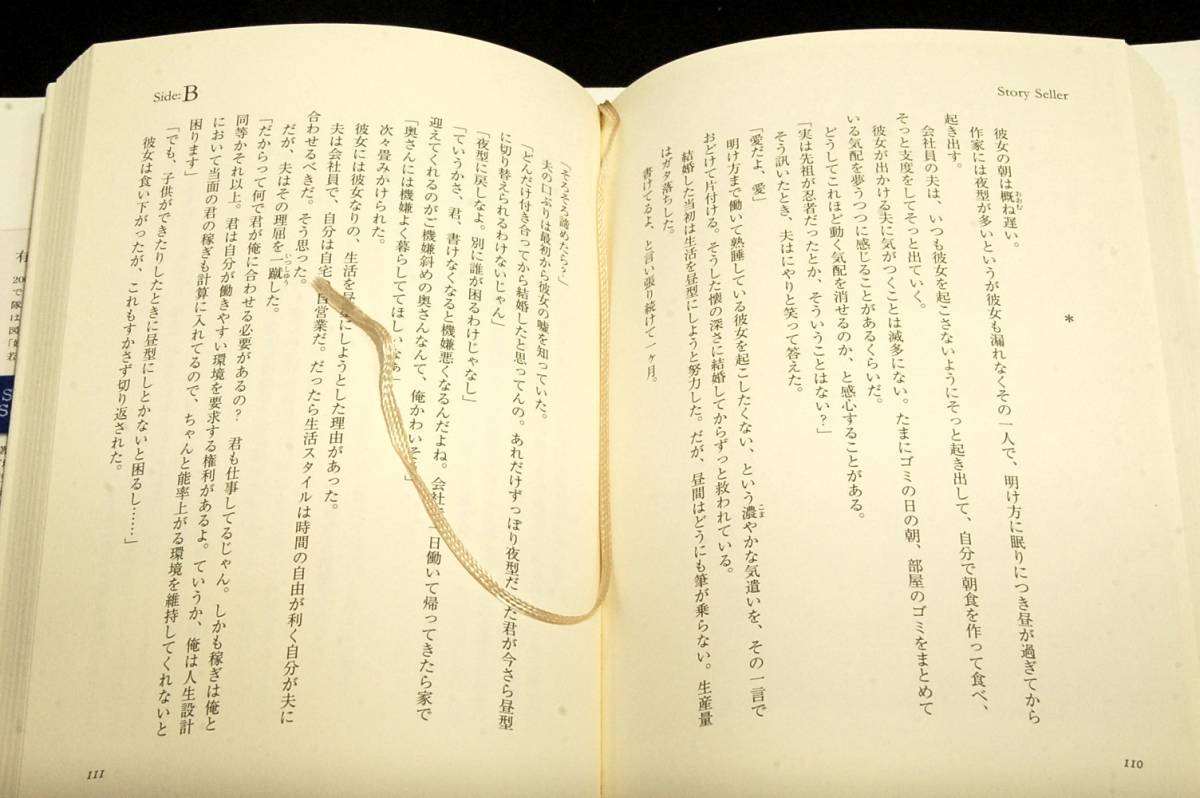 Story Seller
*
彼女の朝は概ね遅い。
作家には夜型が多いというが彼女も漏れなくその一人で、明け方に眠りにつき昼が過ぎてから
起き出す。
会社員の夫は、いつも彼女を起こさないようにそっと起き出して、自分で朝食を作って食べ、
そっと支度をしてそっと出ていく。
彼女が出かける夫に気がつくことは滅多にない。たまにゴミの日の朝、部屋のゴミをまとめて
いる気配を夢うつつに感じることがあるくらいだ。
どうしてこれほど動く気配を消せるのか、と感心することがある。
「実は先祖が忍者だったとか、そういうことはない?」
そう訊いたとき、夫はにやりと笑って答えた。
「愛だよ、愛」
明け方まで働いて熟睡している彼女を起こしたくない、という濃やかな気遣いを、その一言で
おどけて片付ける。そうした懐の深さに結婚してからずっと救われている。
結婚した当初は生活を昼型にしようと努力した。だが、昼間はどうにも筆が乗らない。生産量
はガタ落ちした。
書けてるよ、と言い張り続けて一ヶ月。
110
Side:B
「そろそろ諦めたら?」
夫の口ぶりは最初から彼女の嘘を知っていた。
「どんだけ付き合ってから結婚したと思ってんの。あれだけずっぽり夜型だ た君が今さら昼型
に切り替えられるわけないじゃん」
「夜型に戻しなよ。別に誰が困るわけじゃなし」
「ていうかさ、君、書けなくなると機嫌悪くなるんだよね。会社 日働いて帰ってきたら家で
迎えてくれるのがご機嫌斜めの奥さんなんて、俺かわいそ 」
「奥さんには機嫌よく暮らしててほしいなぁ」
次々畳みかけられた。
彼女には彼女なりの、生活を昼 にしようとした理由があった。
夫は会社員で、自分は自宅 自営業だ。だったら生活スタイルは時間の自由が利く自分が夫に
合わせるべきだ。そう思った。
だが、夫はその理屈を一蹴した。
「だからって何で君が俺に合わせる必要があるの? 君も仕事してるじゃん。しかも稼ぎは俺と
同等かそれ以上。君は自分が働きやすい環境を要求する権利があるよ。ていうか、俺は人生設計
において当面の君の稼ぎも計算に入れてるので、ちゃんと能率上がる環境を維持してくれないと
困ります」
「でも、子供ができたりしたときに昼型にしとかないと困るし……」
彼女は食い下がったが、これもすかさず切り返された。
111